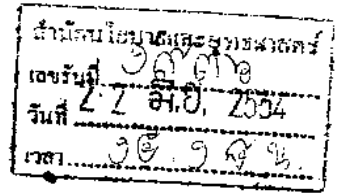 สำนักนโยบายและยุทธศาสตร์
เลขรับที่
วันที่ 2 2 มิ.ย. 2554
เวลา น.